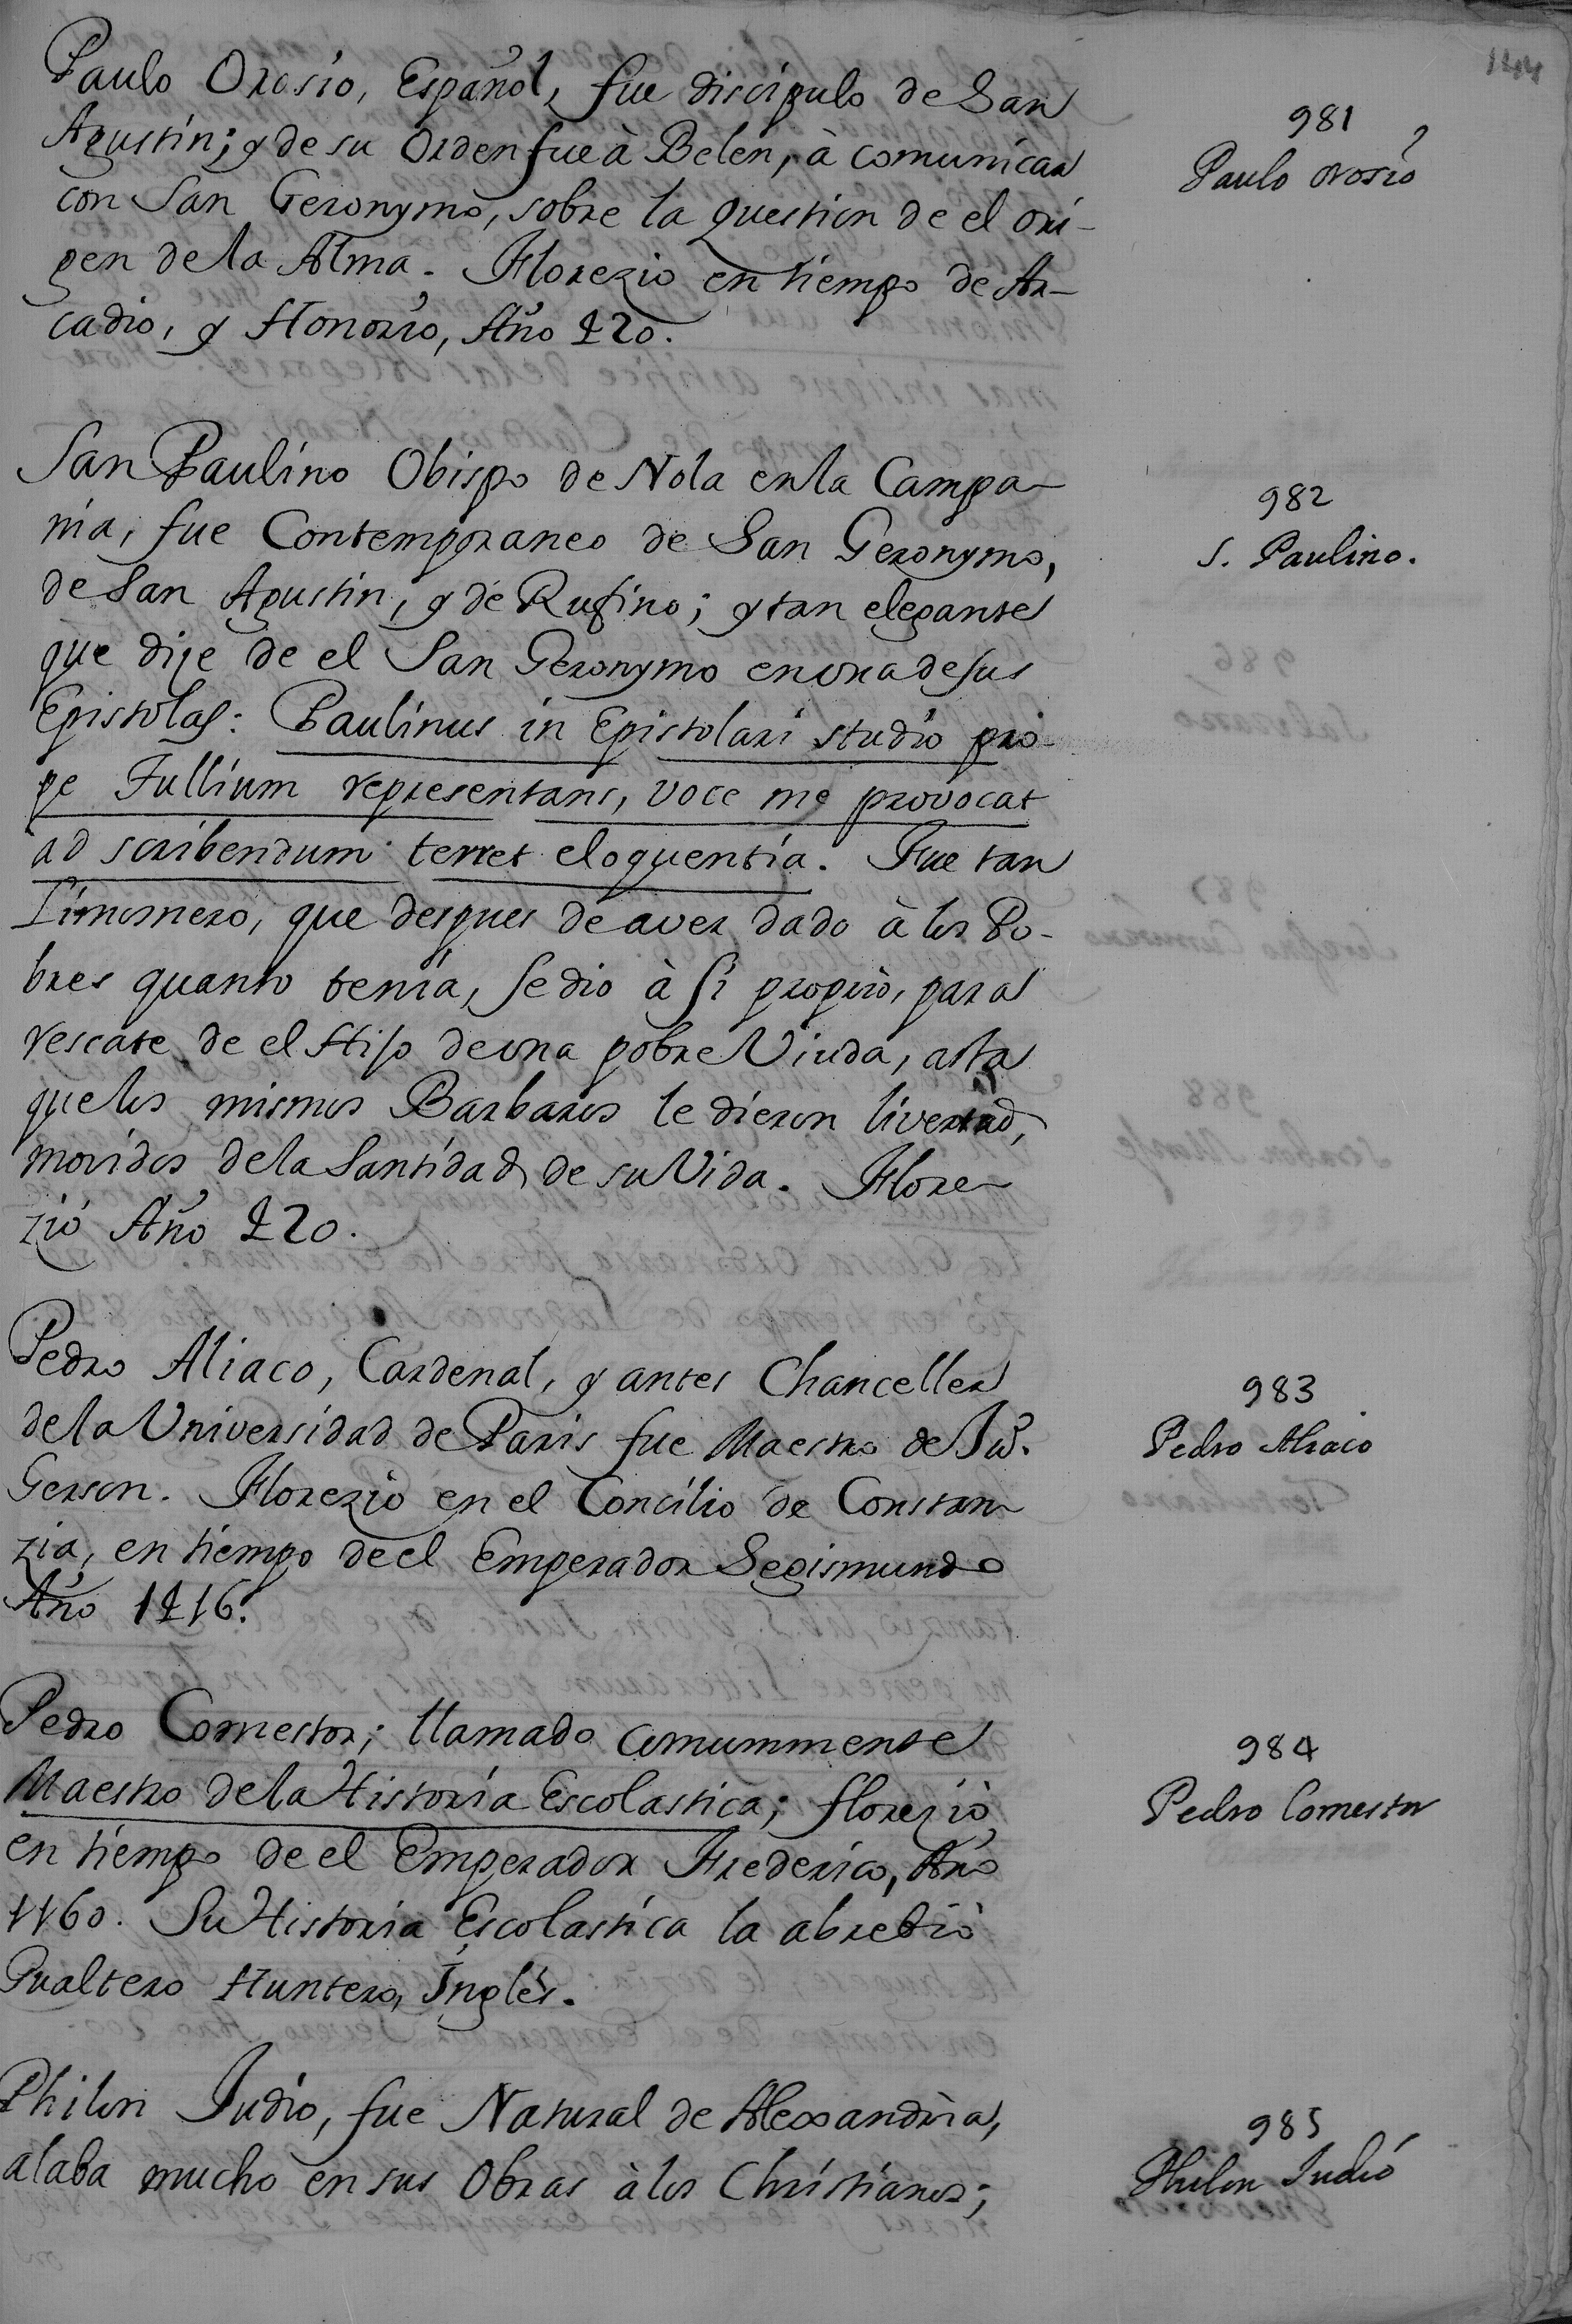 144
Paulo Orosio, Español, fue discipulo de San
Agustin; y de su Orden fue à Belén, à comunicar
con San Geronymo, sobre la question de el ori-
gen de la Alma. Florezio en tiempo de Ar-
cadio, y Honorio, Año 420.
981
Paulo Orosio
San Paulino Obispo de Nola en la Campa-
nia, fue Contemporaneo de San Geronymo,
de San Agustin, y de Rufino; y tan elegante
que dije de el San Geronymo en una de sus
Epistolas: Paulinus in Epistolari studio pro-
pe Tullium representans, voce me provocat
ad scribendum terret eloquentia. Fue tan
Limosnero, que despues de aver dado à los Po-
bres quanto tenia, se dio à si proprio, para
rescate de el Hijo de una pobre Viuda, asta
que los mismos Barbaros le dieron livertad,
movidos de la Santidad de su Vida. Flore-
zió Año 420.
982
S. Paulino.
Pedro Aliaco, Cardenal, y antes Chanceller
de la Universidad de Paris fue Maestro de Juº.
Gerson. Florezio en el Concilio de Constan-
zia, en tiempo de el Emperador Segismundo
Año 1416.
983
Pedro Aliaco
Pedro Comestor; llamado comummente
Maestro de la Historia Escolastica; florezió
en tiempo de el Emperador Frederico, Año
1160. Su Historia Escolastica la abrebiò
Gualtero Huntero, Inglés.
984
Pedro Comestor
Philon Judio, fue Natural de Alexandria,
alaba mucho en sus Obras à los Christianos;
985
Philon Judió